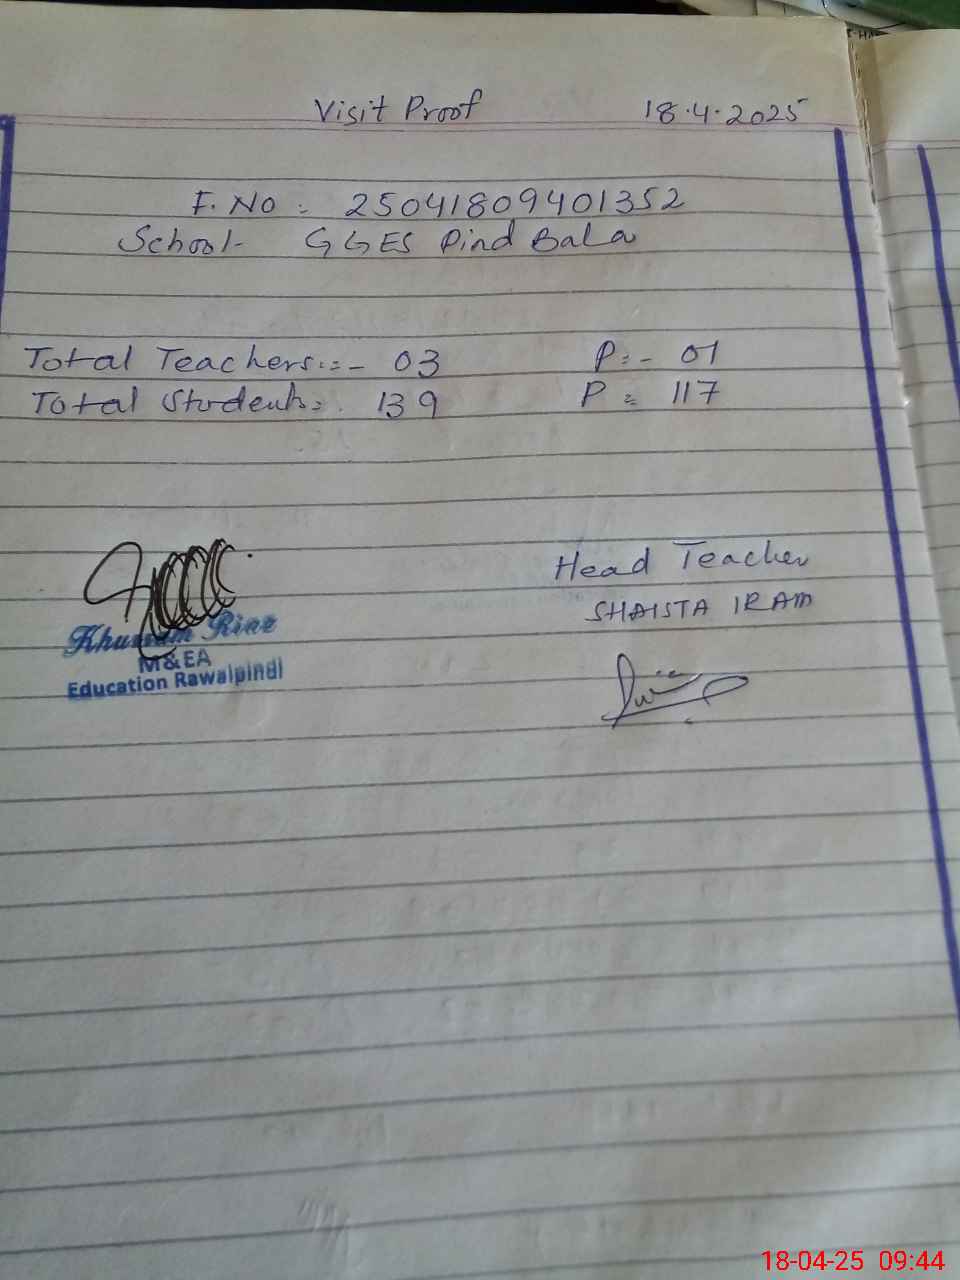 Visit Proof 18.4.2025
F. No : 25041809401352
School- GGES Pind Bala
Total Teachers:=- 03 P:=- 01
Total Students=. 139 P = 117
Head Teacher
SHAISTA IRAM
Khurram Riaz
M&EA
Education Rawalpindi
18-04-25 09:44